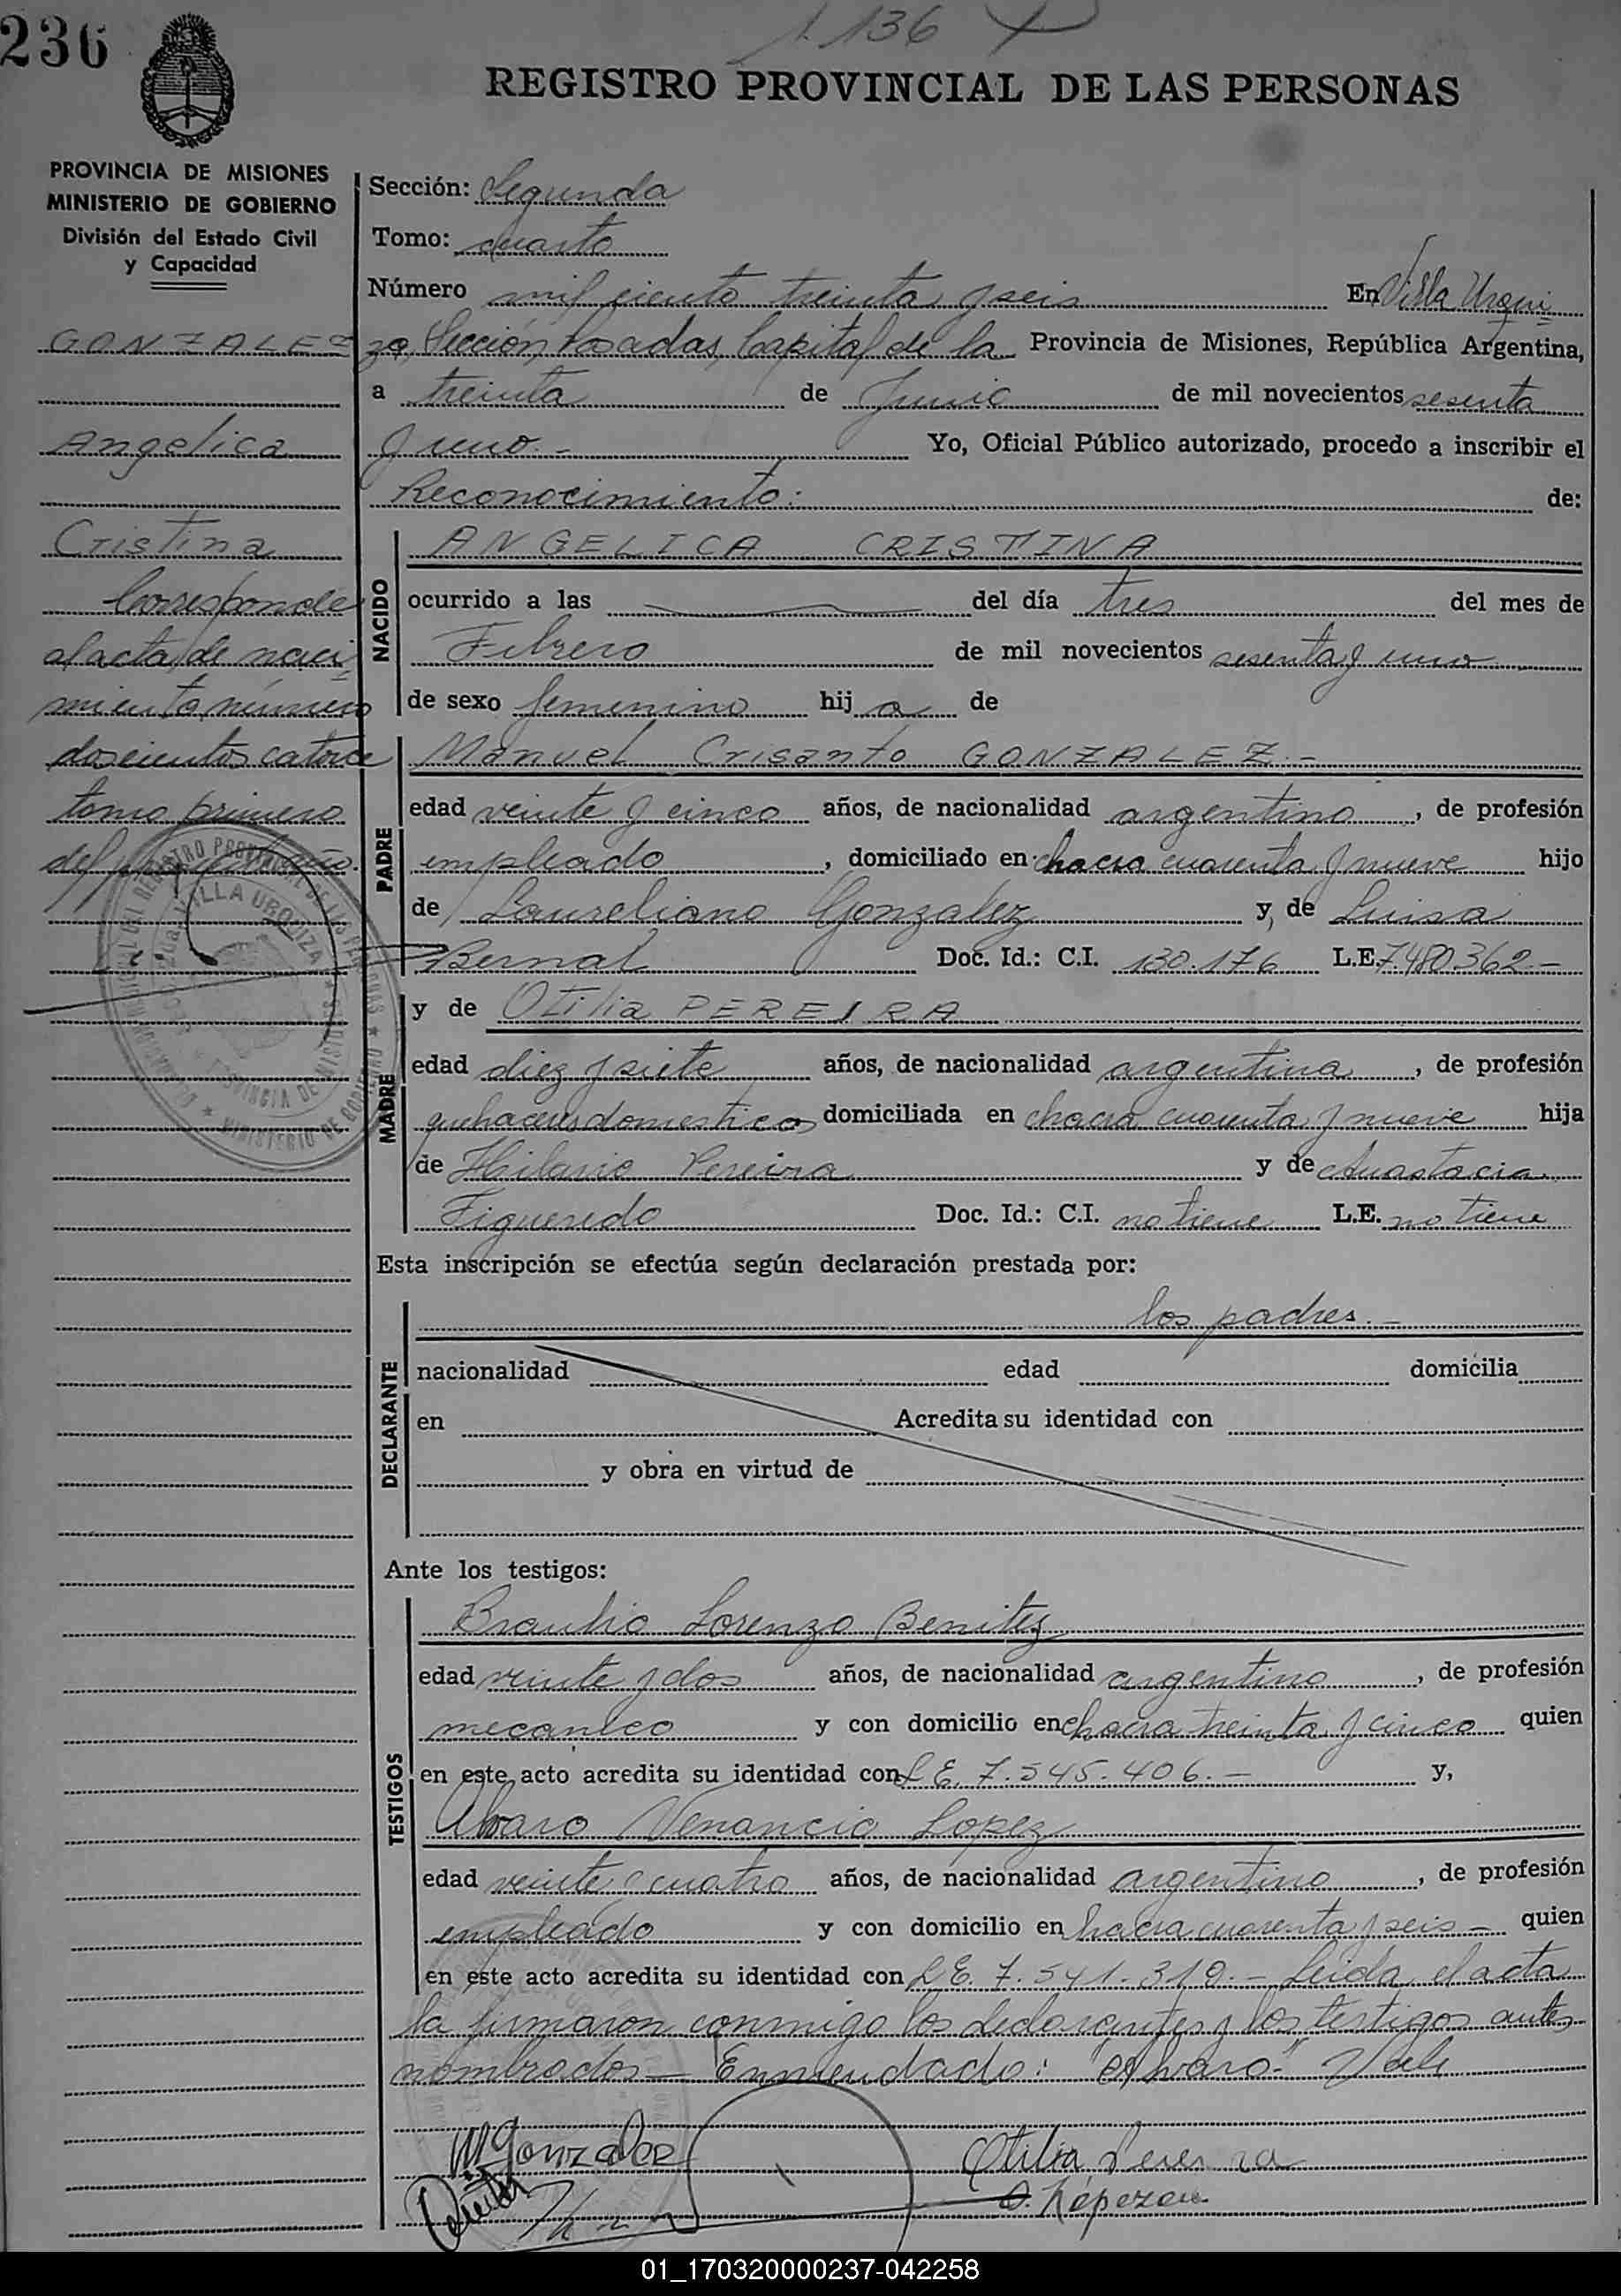 236
1136
REGISTRO PROVINCIAL DE LAS PERSONAS
PROVINCIA DE MISIONES
MINISTERIO DE GOBIERNO
División del Estado Civil
y Capacidad
GONZALEZ
Angelica
Cristina
Corresponde
al acta de naci
miento número
doscientos catorce
tomo primero
del
Sección: Segunda
Tomo: cuarto
Número mil ciento treinta y seis En Villa Urqui
za, Sección Posadas, Capital de la Provincia de Misiones, República Argentina,
a treinta de Junio de mil novecientos sesenta
y uno.- Yo, Oficial Público autorizado, procedo a inscribir el
Reconocimiento: de:
NACIDO
ANGELICA CRISTINA
ocurrido a las del día tres del mes de
Febrero de mil novecientos sesenta y uno
de sexo femenino hija de
PADRE
Manuel Crisanto GONZALEZ.-
edad veinte y cinco años, de nacionalidad argentino, de profesión
empleado, domiciliado en chacra cuarenta y nueve hijo
de Laureliano Gonzalez y, de Luisa
Bernal Doc. Id.: C.I. 130.176 L.E. 7.480.362.-
MADRE
y de Otilia PEREIRA
edad diez y siete años, de nacionalidad argentina, de profesión
quehaceres domesticos domiciliada en chacra cuarenta y nueve hija
de Hilario Pereira y de Anastacia
Figueredo Doc. Id.: C.I. no tiene L.E. no tiene
Esta inscripción se efectúa según declaración prestada por:
DECLARANTE
los padres.-
nacionalidad edad domicilia
en Acredita su identidad con
y obra en virtud de
Ante los testigos:
TESTIGOS
Braulio Lorenzo Benitez
edad veinte y dos años, de nacionalidad argentino, de profesión
mecanico y con domicilio en chacra treinta y cinco quien
en este acto acredita su identidad con L.E. 7.545.406.- y,
Alvaro Venancio Lopez
edad veinte y cuatro años, de nacionalidad argentino, de profesión
empleado y con domicilio en chacra cuarenta y seis - quien
en este acto acredita su identidad con L.E. 7.541.319.- Leida el acta
la firmaron conmigo los declarantes y los testigos antes
nombrados - Enmendado: "Alvaro-" Vale
M Gonzalez
Otilia Pereira
01_170320000237-042258